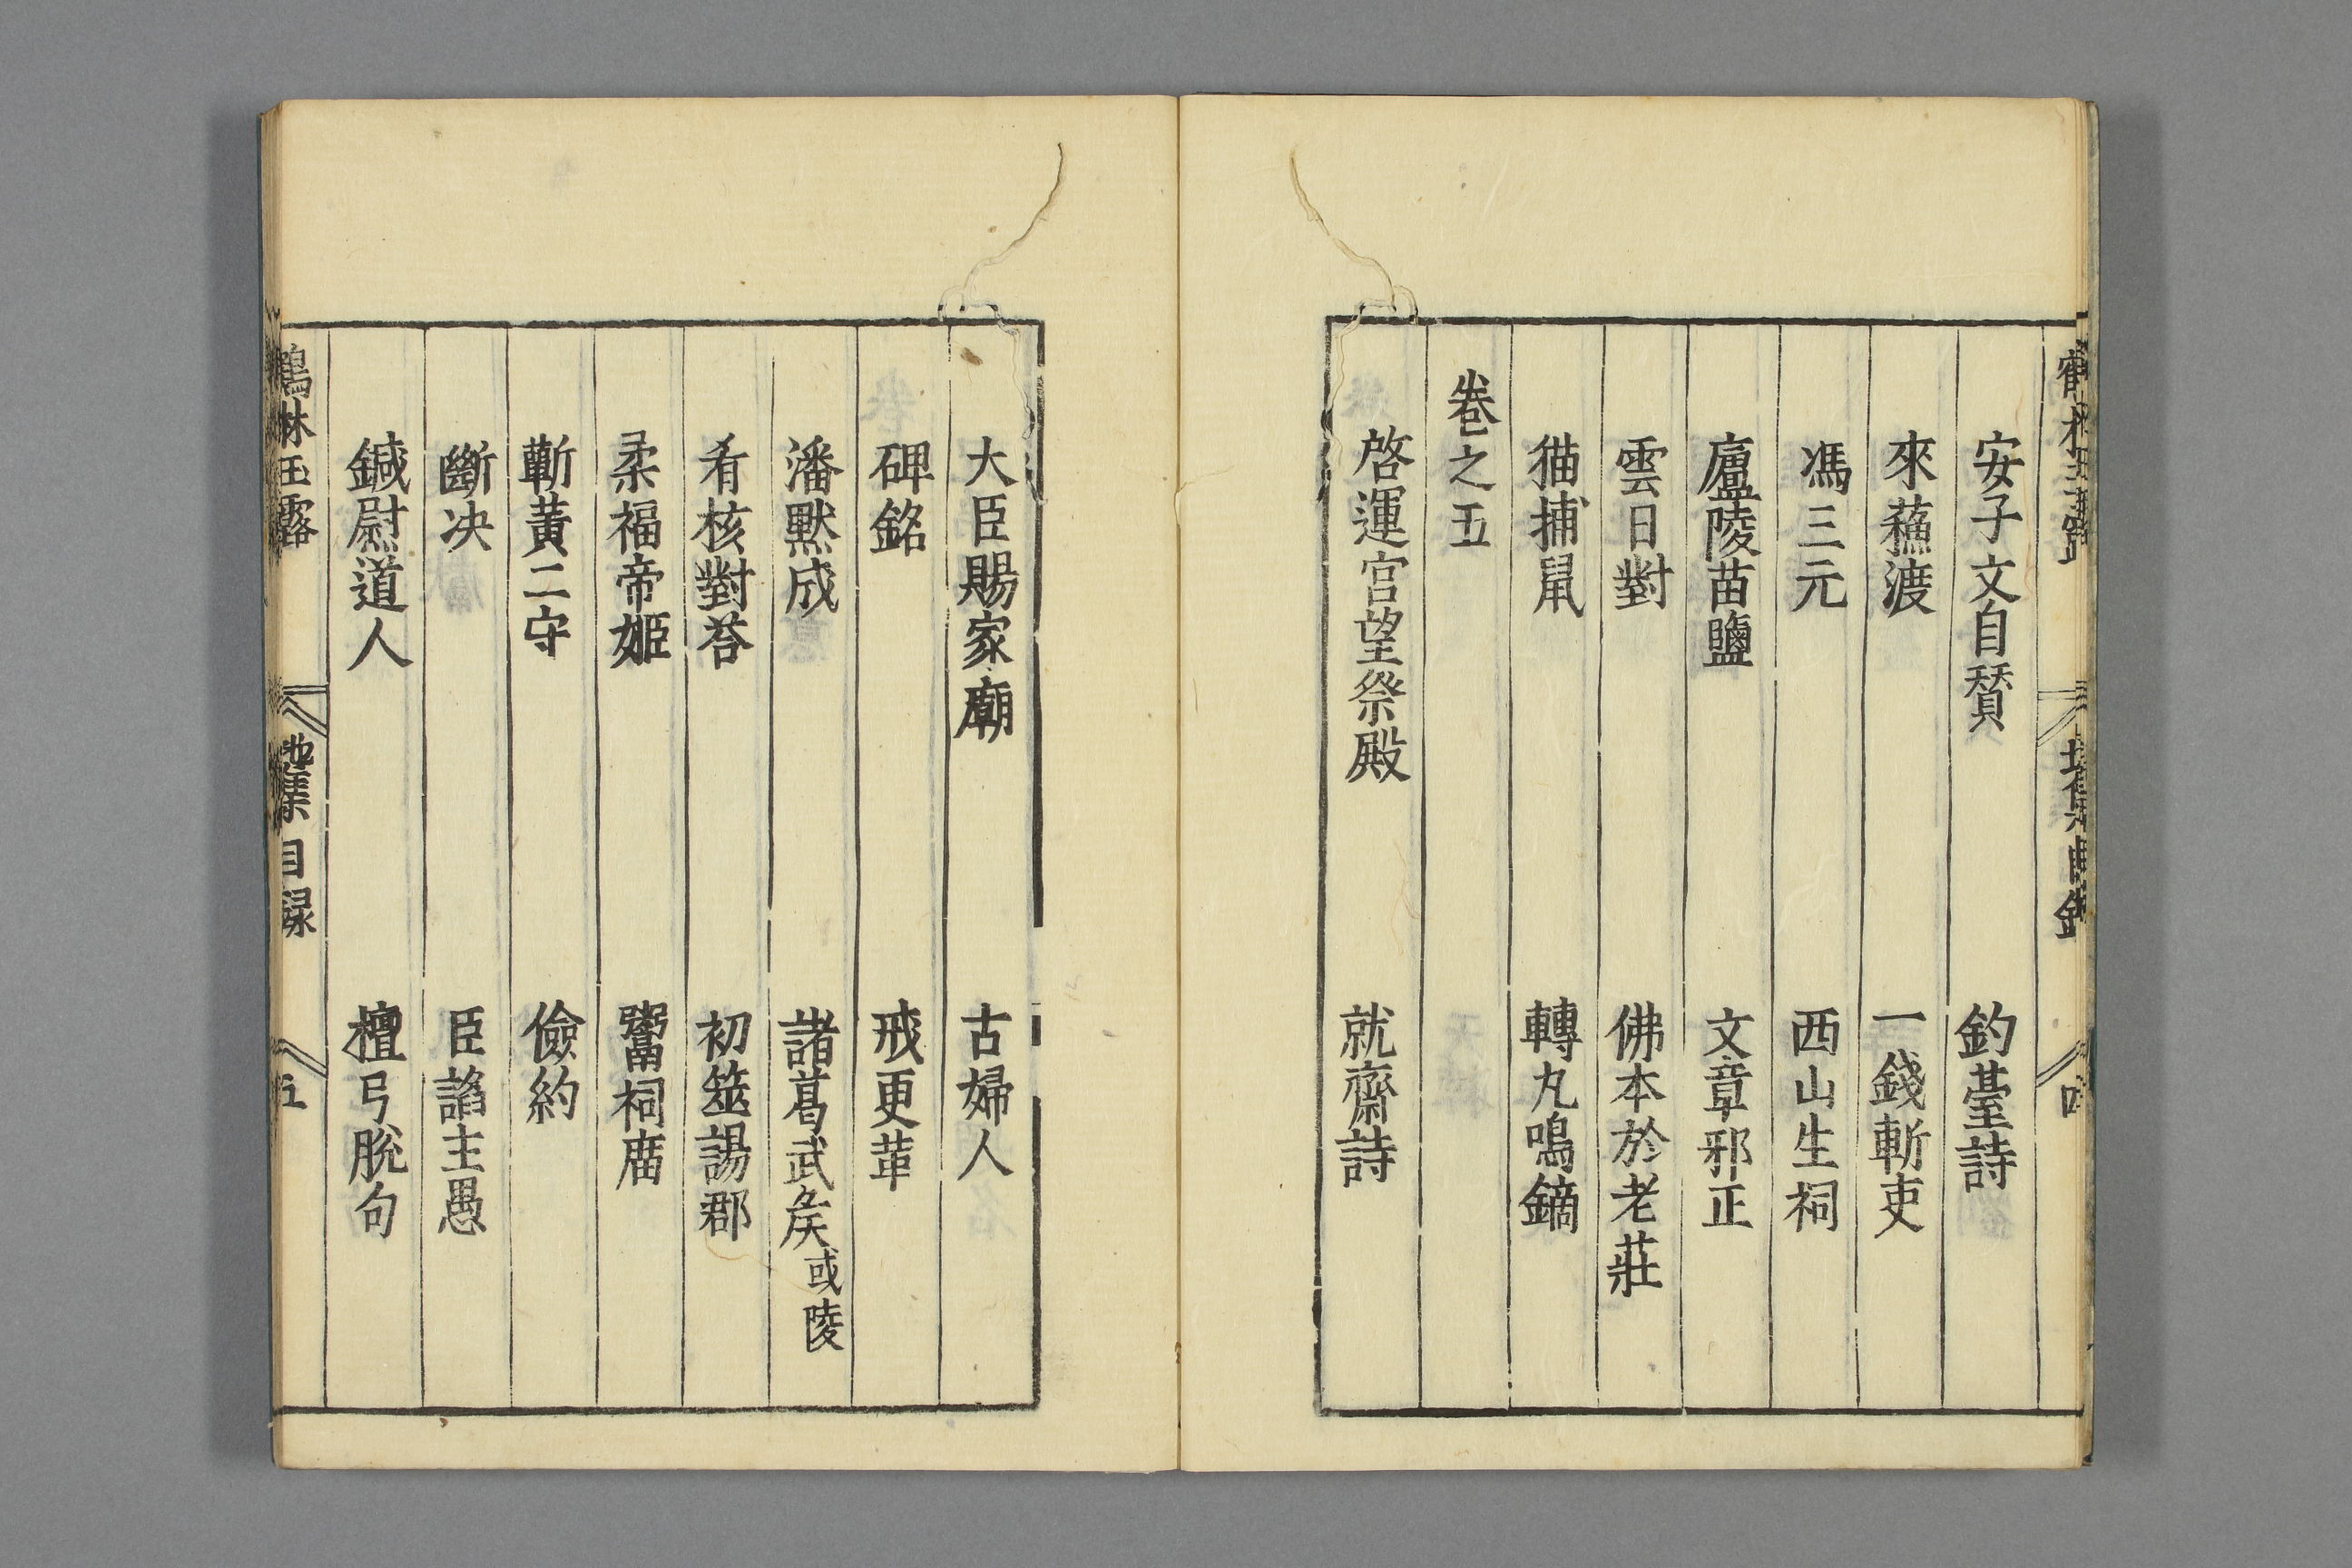 安子文自賛　釣䑓詩
來蘓渡　一錢斬吏
馮三元　西山生祠
廬陵苗鹽　文章邪正
雲日對　佛本於老莊
猫捕鼠　轉丸鳴鏑
卷之五
啓運宮望祭殿　就齋詩
大臣賜家廟　古婦人
碑銘　戒更革
潘默成　諸葛武矦或陵
肴核對荅　初筮謁郡
柔福帝姬　鬻祠廟
蘄黃二守　儉約
斷决　臣諂主愚
鍼尉道人　檀弓脫句
鶴林玉露　地集目録　五